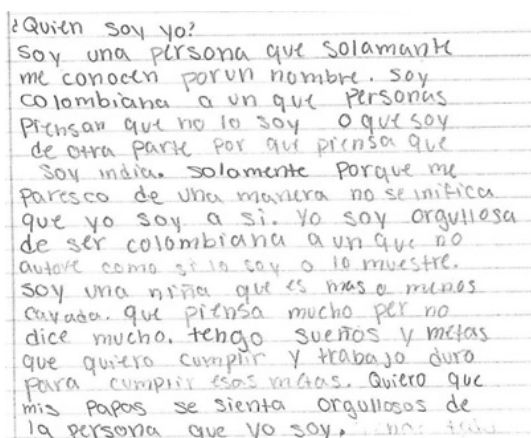 ¿Quien soy yo?
Soy una persona que solamante
me conocen por un nombre. soy
colombiana a un que personas
piensan que no lo soy o que soy
de otra parte por que piensa que
soy india. solamente porque me
paresco de una manera no seinifica
que yo soy a si. Yo soy orgullosa
de ser colombiana a un que no
autove como si lo soy o lo muestre.
soy una niña que es mas o menos
cayada. que piensa mucho per no
dice mucho. tengo sueños y metas
que quiero cumplir y trabajo duro
para cumplir esas metas. Quiero que
mis papas se sienta orgullosos de
la persona que yo soy.